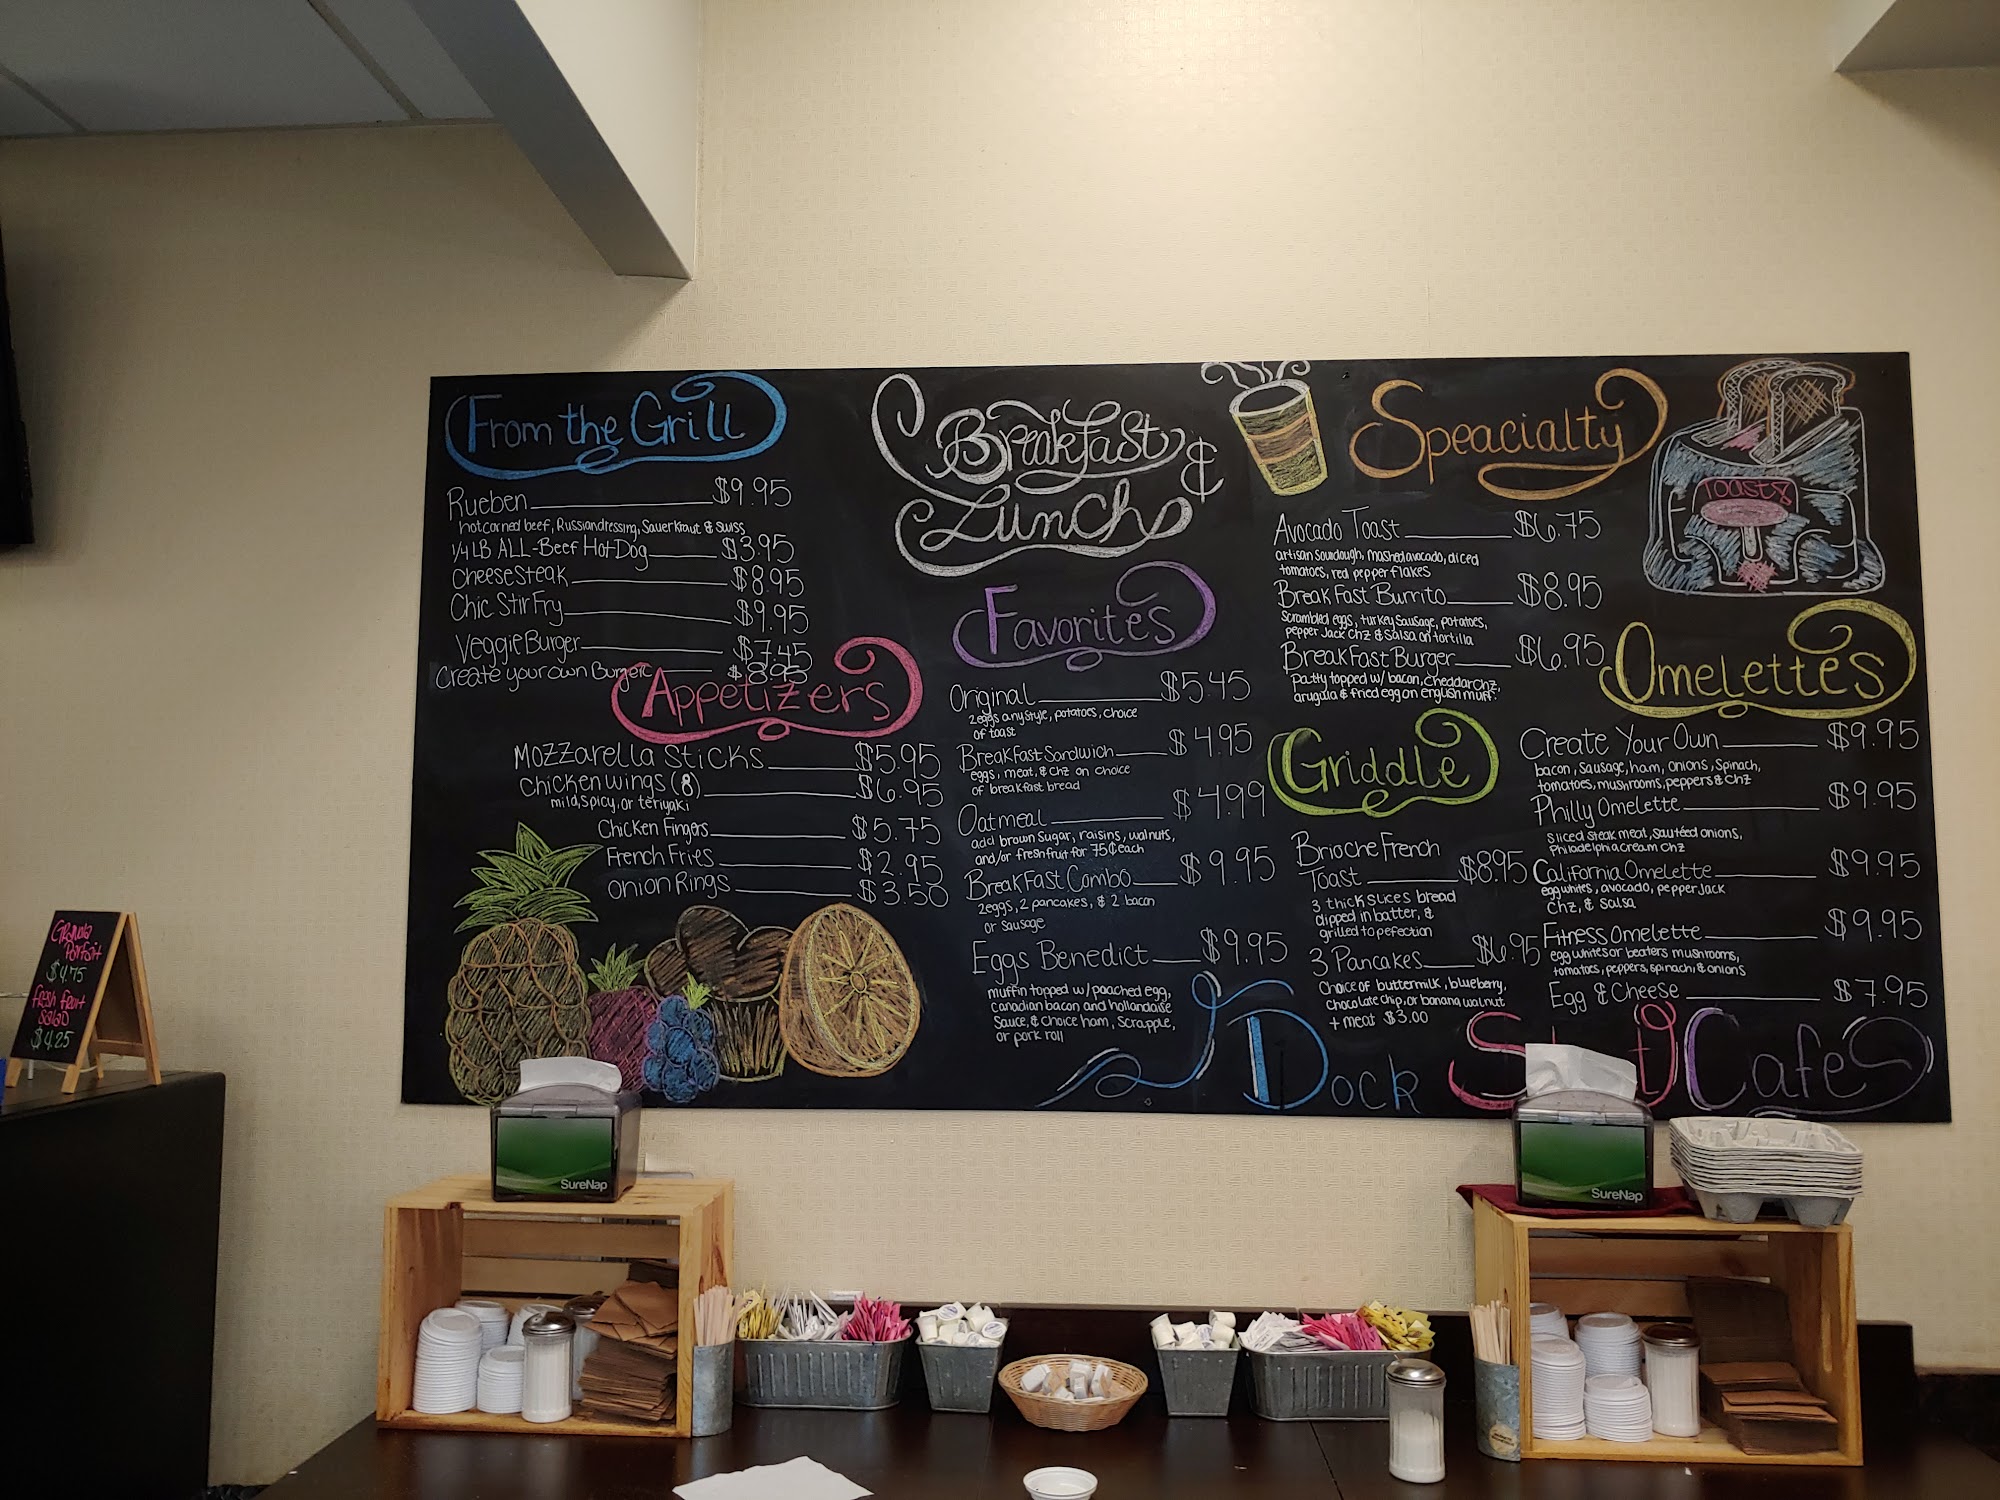 From the Grill
Rueben $9.95
hot corned beef, Russian dressing, Sauerkraut & Swiss
1/4 LB ALL-Beef Hot Dog $3.95
CheeseSteak $8.95
Chic Stir Fry $9.95
Veggie Burger $7.45
Create your own Burger $8.95
Appetizers
Mozzarella Sticks $5.95
Chicken wings (8) $6.95
mild, spicy, or teriyaki
Chicken Fingers $5.75
French Fries $2.95
Onion Rings $3.50
Breakfast &
Lunch
Favorites
Original $5.45
2 eggs any style, potatoes, choice
of toast
Breakfast Sandwich $4.95
eggs, meat, & chz on choice
of breakfast bread
Oatmeal $4.99
add brown sugar, raisins, walnuts,
and/or fresh fruit for 75¢ each
Breakfast Combo $9.95
2 eggs, 2 pancakes, & 2 bacon
or sausage
Eggs Benedict $9.95
muffin topped w/ poached egg,
canadian bacon and hollandaise
Sauce, & choice ham, scrapple,
or pork roll
Speacialty
Avocado Toast $6.75
artisan sourdough, mashed avocado, diced
tomatoes, red pepper flakes
Breakfast Burrito $8.95
Scrambled eggs, turkey sausage, potatoes,
pepper Jack chz & Salsa on tortilla
Breakfast Burger $6.95
Patty topped w/ bacon, cheddar chz,
arugula & fried egg on english muff.
Griddle
Brioche French
Toast $8.95
3 thick slices bread
dipped in batter, &
grilled to pefection
3 Pancakes $6.95
Choice of buttermilk, blueberry,
chocolate chip, or banana walnut
+ meat $3.00
Toasty
Omelettes
Create Your Own $9.95
bacon, sausage, ham, onions, spinach,
tomatoes, mushrooms, peppers & chz
Philly Omelette $9.95
sliced steak meat, sautéed onions,
Philadelphia cream chz
California Omelette $9.95
egg whites, avocado, pepper jack
chz, & salsa
Fitness Omelette $9.95
egg whites or beaters mushrooms,
tomatoes, peppers, spinach, & onions
Egg & Cheese $7.95
Dock Cafe
Granola
Parfait
$4.75
fresh fruit
salad
$4.25
SureNap
SureNap